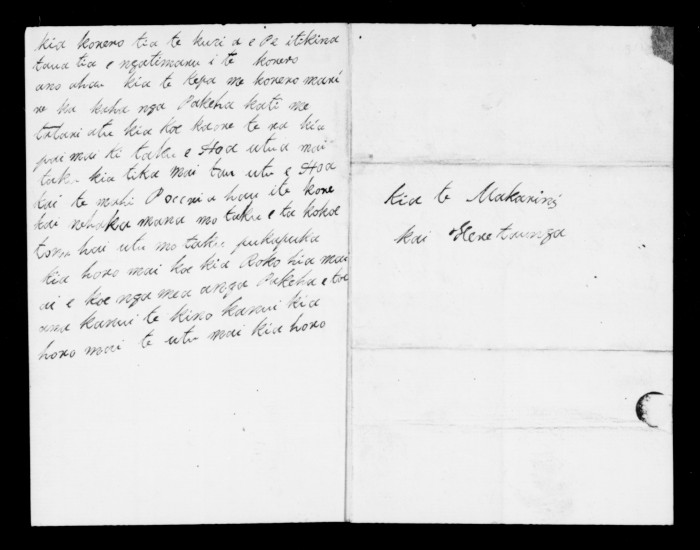 kia korero tia te kuri a e Pe itikina
taua tia e ngatimaru i te korero
ano ahau kia te Kepa me korero mari
re ka kaha nga Pakeha kati me
tatari atu kia koe kaore te ra kia
pai mai ki taku e Hoa utua mai
taku kia tika mai tau utu e Hoa
kai te mahi a hau ite kore
kai mana mo taku e ta kokoe
tonu hai utu mo taku pukapuka
kia horo mai koe kia Roko hia mai
ai e koe nga mea anga Pakeha e toe
ana kanui te kino kanui kia
horo mai te utu mai kia horo
kia te Makarini
kai Heretaunga